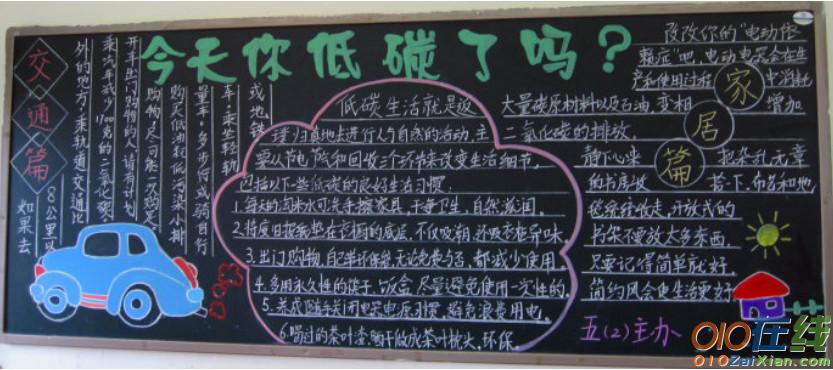 今天你低碳了吗？
交通篇
开车出门购物的人，请有计划
购物，尽可能一次购足。
购买低油耗低污染小排
量车，多步行或骑自行
车，乘坐轻轨
或地铁
如果去
8公里以
外的地方，乘轨道交通比
乘汽车减少1700克的二氧化碳。
低碳生活就是返
璞归真地去进行人与自然的活动，主
要从节电节气和回收三个环节来改变生活细节，
包括以下一些低碳的良好生活习惯：
1.每天的淘米水可洗手擦家具，干净卫生，自然滋润。
2.将废旧报纸垫在衣柜的底层，不仅吸潮，还吸衣柜异味。
3.出门购物，自己带环保袋，无论免费与否，都减少使用
4.多用永久性的筷子、饭盒，尽量避免使用一次性的。
5.养成随手关闭电器电源习惯，避免浪费用电。
6.喝过的茶叶渣，晒干做成茶叶枕头，环保。
家居篇
改改你的“电动依
赖症”吧，电动电器会在生
产和使用过程中消耗
大量碳原材料以及石油，变相增加
二氧化碳的排放。
静下心来把杂乱无章
的书房收拾一下，布艺和地
毯统统收走，开放式的
书架不要放太多东西，
只要记得简单就好，
简约风会使生活更好
五(2)主办
010在线
010ZaiXian.com